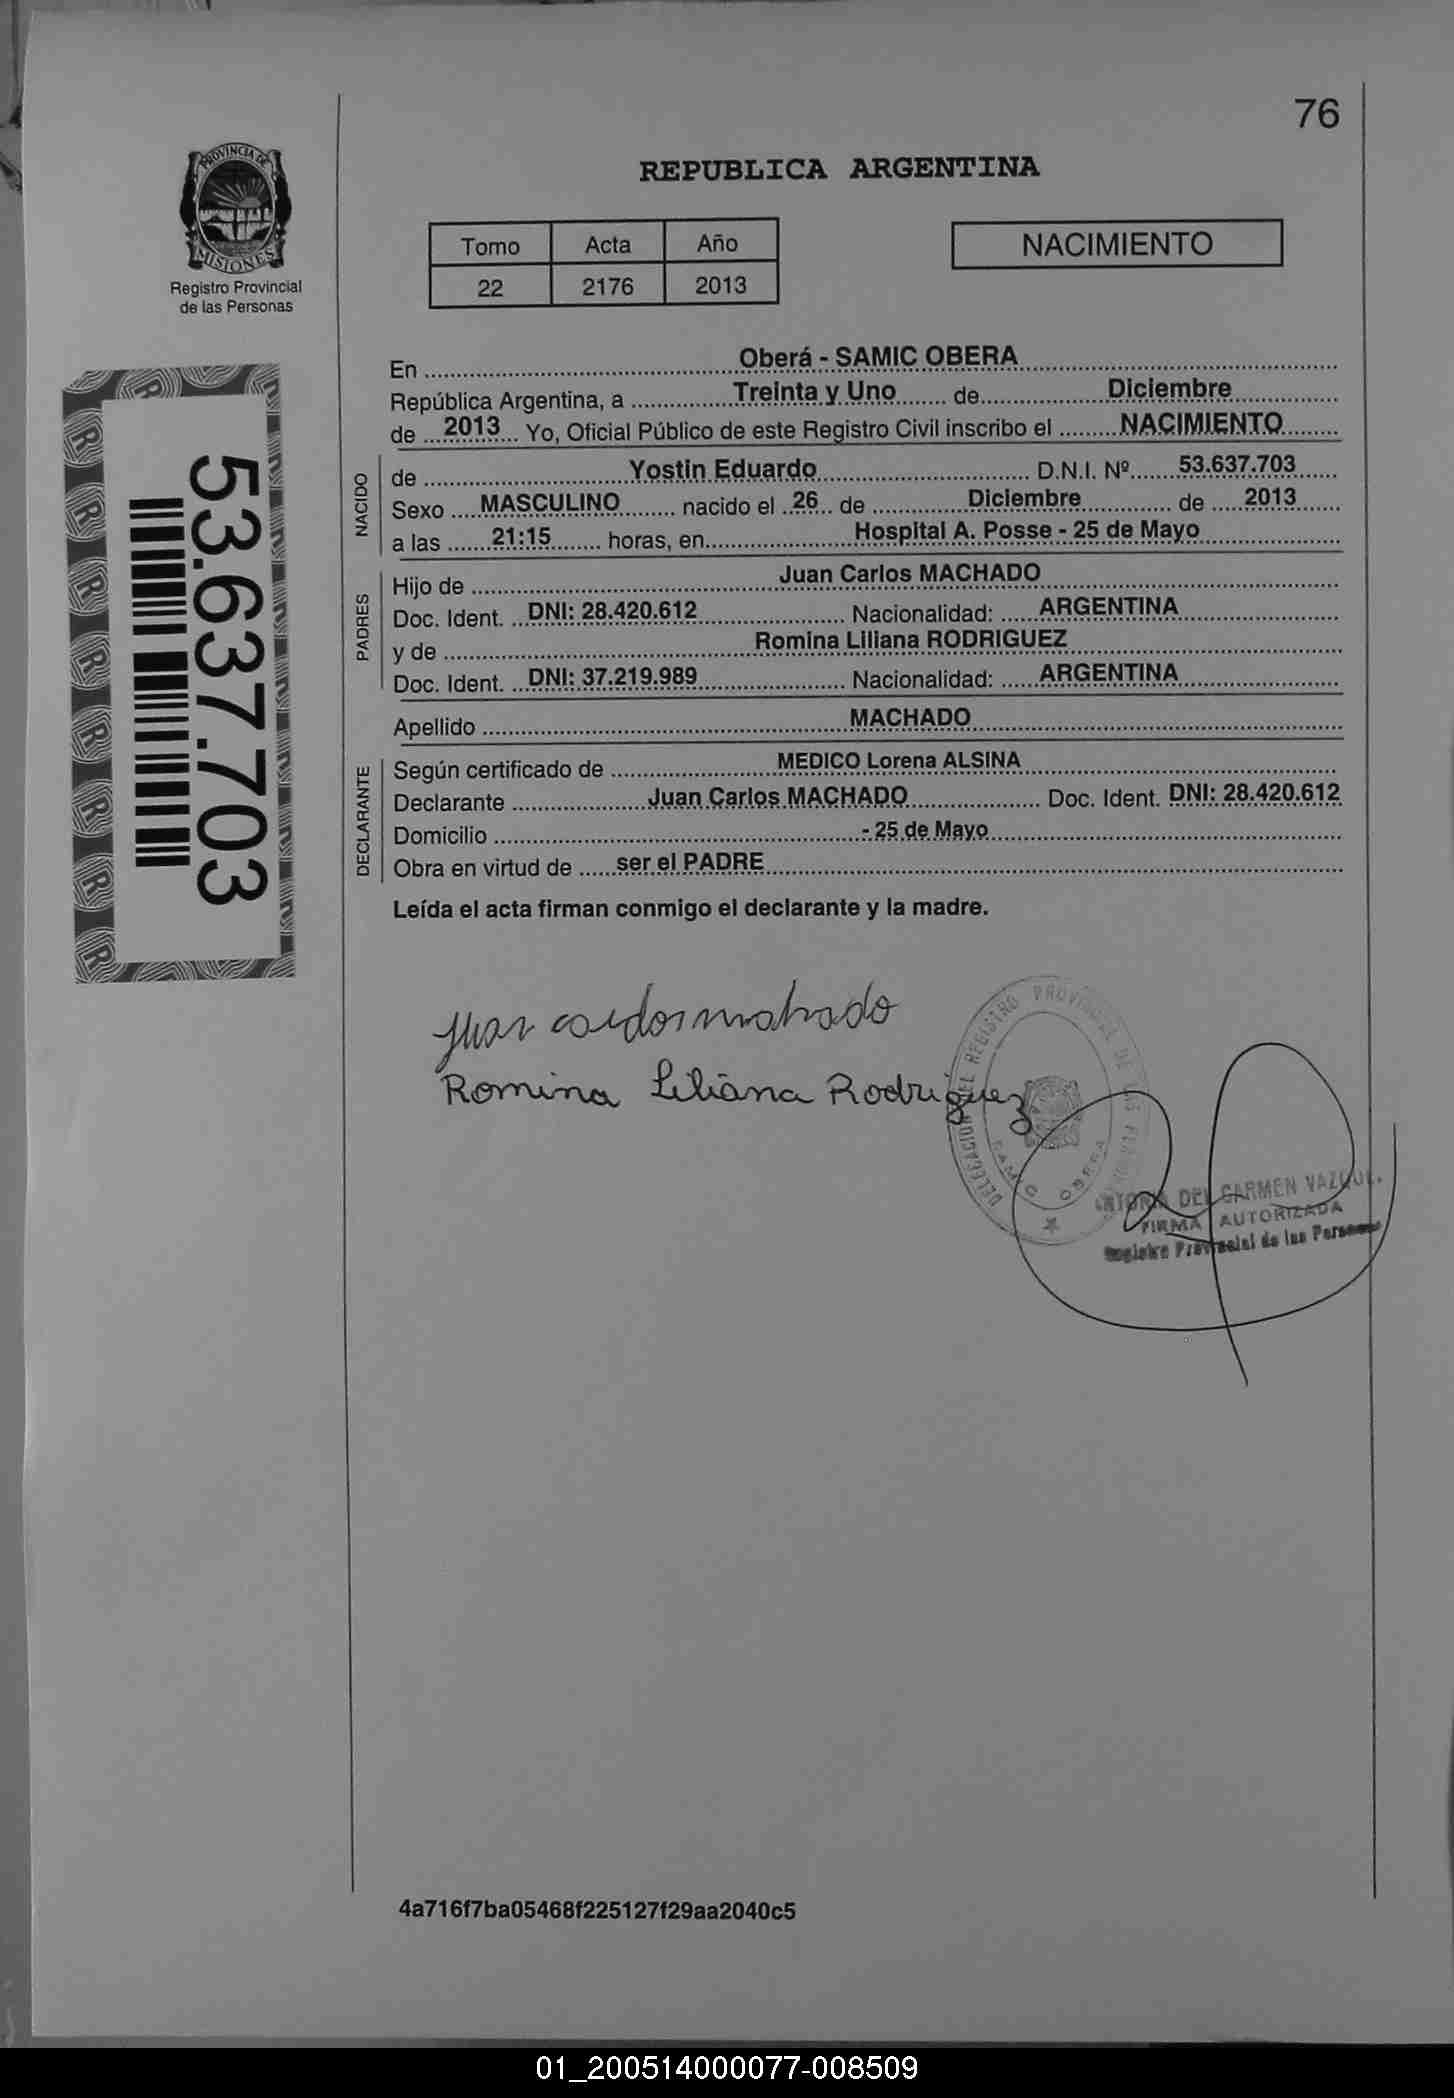 76
PROVINCIA DE
MISIONES
Registro Provincial
de las Personas
REPUBLICA ARGENTINA
Tomo Acta Año
22 2176 2013
NACIMIENTO
53.637.703
En Oberá - SAMIC OBERA
República Argentina, a Treinta y Uno de Diciembre
de 2013 Yo, Oficial Público de este Registro Civil inscribo el NACIMIENTO
NACIDO
de Yostin Eduardo D.N.I. Nº 53.637.703
Sexo MASCULINO nacido el 26 de Diciembre de 2013
a las 21:15 horas, en Hospital A. Posse - 25 de Mayo
PADRES
Hijo de Juan Carlos MACHADO
Doc. Ident. DNI: 28.420.612 Nacionalidad: ARGENTINA
y de Romina Liliana RODRIGUEZ
Doc. Ident. DNI: 37.219.989 Nacionalidad: ARGENTINA
Apellido MACHADO
DECLARANTE
Según certificado de MEDICO Lorena ALSINA
Declarante Juan Carlos MACHADO Doc. Ident. DNI: 28.420.612
Domicilio - 25 de Mayo
Obra en virtud de ser el PADRE
Leída el acta firman conmigo el declarante y la madre.
Juan Carlos Machado
Romina Liliana Rodriguez
DELEGACION DEL REGISTRO PROVINCIAL DE LAS
SAMIC OBERA
DEL CARMEN
FIRMA AUTORIZADA
Registro Provincial de las Personas
4a716f7ba05468f225127f29aa2040c5
01_200514000077-008509